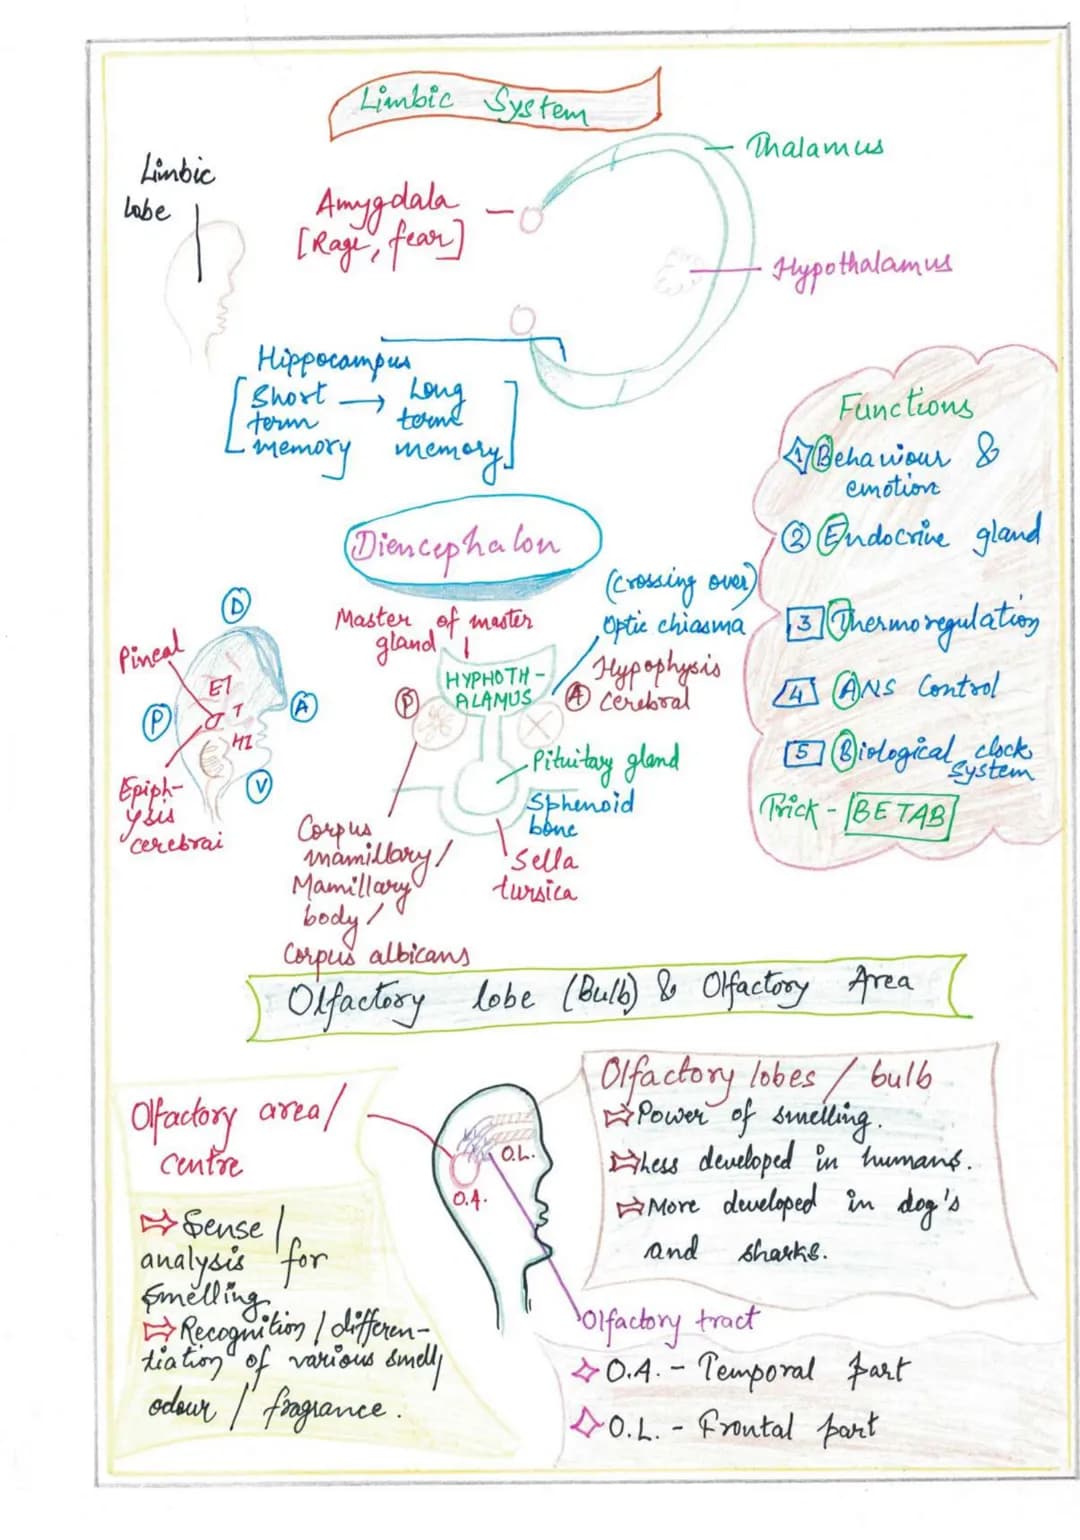 Limbic System
Limbic
lobe
Thalamus
Amygdala
[Rage, fear]
Hypothalamus
Hippocampus
[Short → Long
term term
memory memory]
Functions
1 Behaviour &
emotion
2 Endocrine gland
3 Thermoregulation
4 ANS Control
5 Biological clock
System
Trick - BETAB
Diencephalon
Master of master
gland
(Crossing over)
Optic chiasma
HYPHOTH-
ALAMUS
Hypophysis
Cerebral
P
A
Pituitary gland
Sphenoid
bone
Sella
tursica
Corpus
mamillary/
Mamillary
body/
Corpus albicans
D
Pineal
ET
T
HI
P
A
V
Epiph-
ysis
cerebrai
Olfactory lobe (Bulb) & Olfactory Area
Olfactory area/
centre
⇒ Sense/
analysis for
smelling
⇒ Recognition/differen-
tiation of various smell,
odour / fragrance.
O.L.
O.A.
Olfactory lobes / bulb
⇒ Power of smelling.
⇒ Less developed in humans.
⇒ More developed in dog's
and sharks.
Olfactory tract
O.A. - Temporal part
O.L. - Frontal part